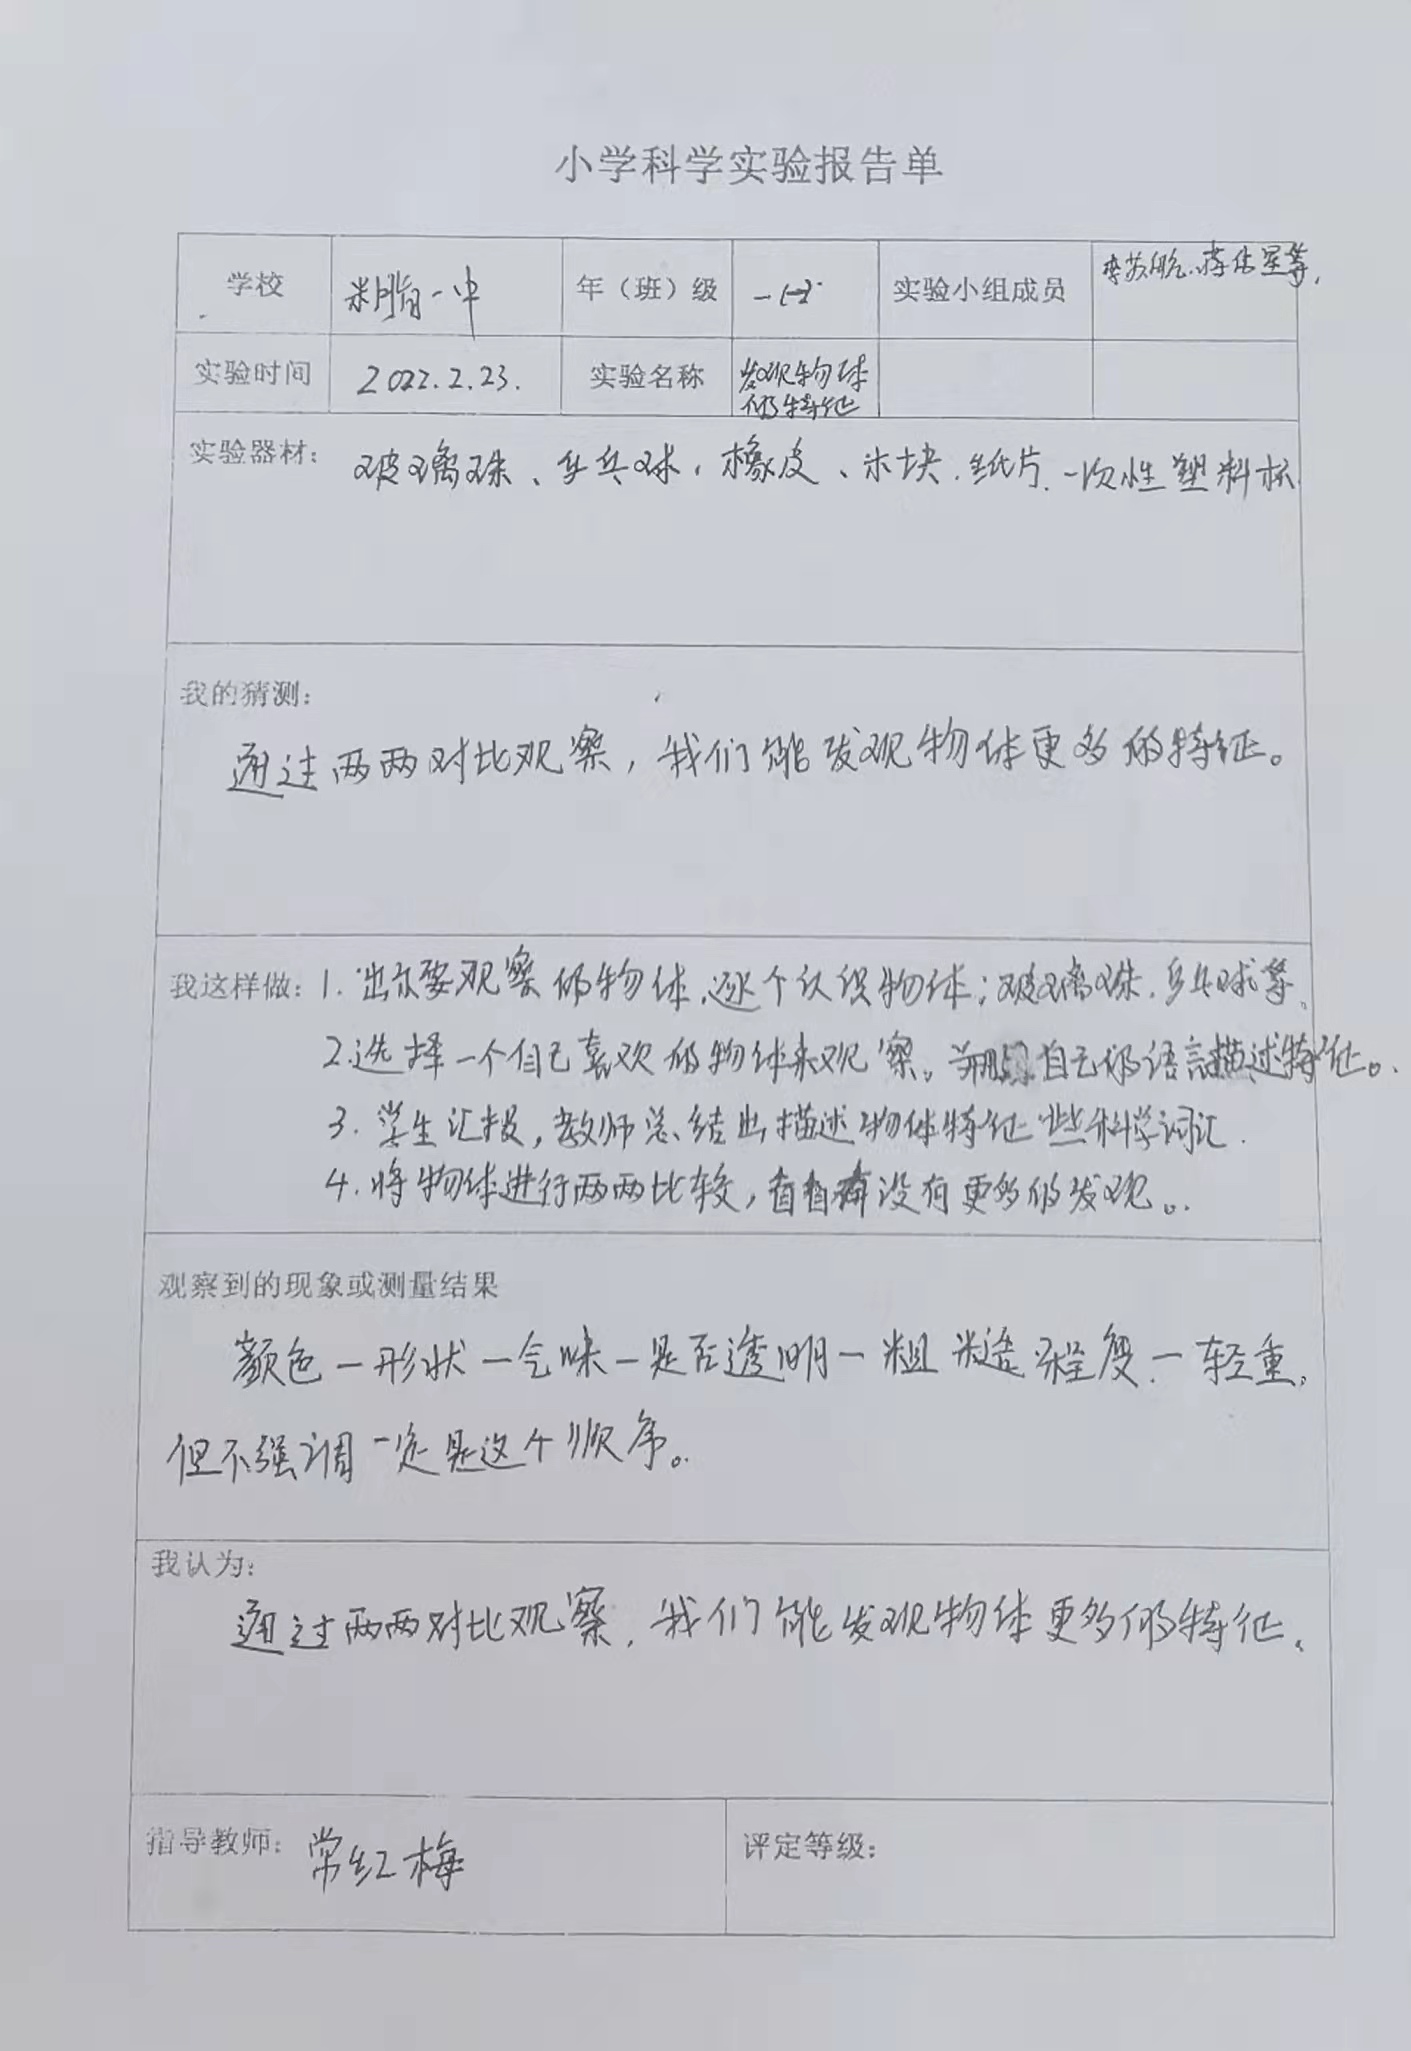 小学科学实验报告单
学校 米脂一中 年（班）级 实验小组成员
实验时间 2022.2.23. 实验名称 发现物体
的特征
实验器材： 玻璃珠、乒乓球、橡皮、木块、纸片、一次性塑料杯
我的猜测：
通过两两对比观察，我们能发现物体更多的特征。
我这样做：1.出示要观察的物体，逐个认识物体；玻璃珠、乒乓球等。
2.选择一个自己喜欢的物体来观察。并用自己的语言描述特征。
3.学生汇报，教师总结出描述物体特征些科学词汇.
4.将物体进行两两比较，看看有没有更多的发现。
观察到的现象或测量结果
颜色一形状一气味一是否透明一粗糙程度一轻重，
但不强调一定是这个顺序。
我认为：
通过两两对比观察，我们能发现物体更多的特征。
指导教师：常红梅 评定等级：